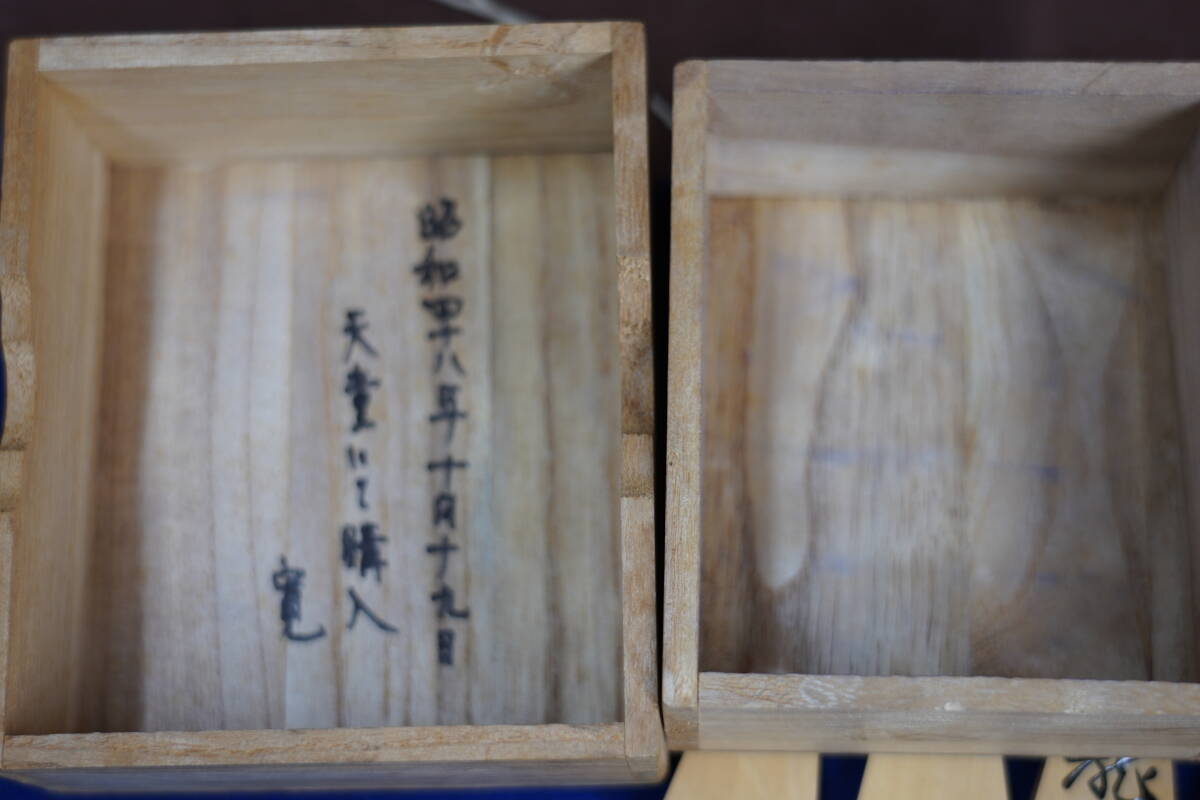 昭和四十八年十月十九日
天堂にて購入
寛